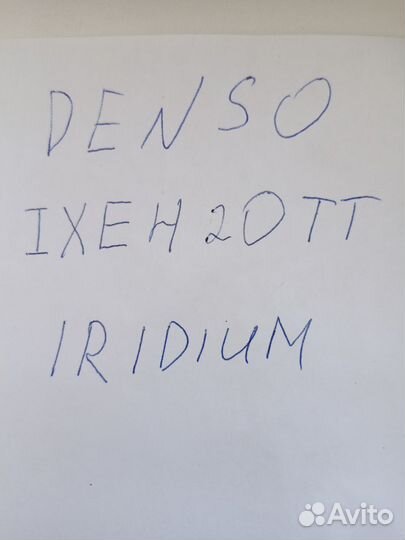 DENSO
IXEH20TT
IRIDIUM
Avito